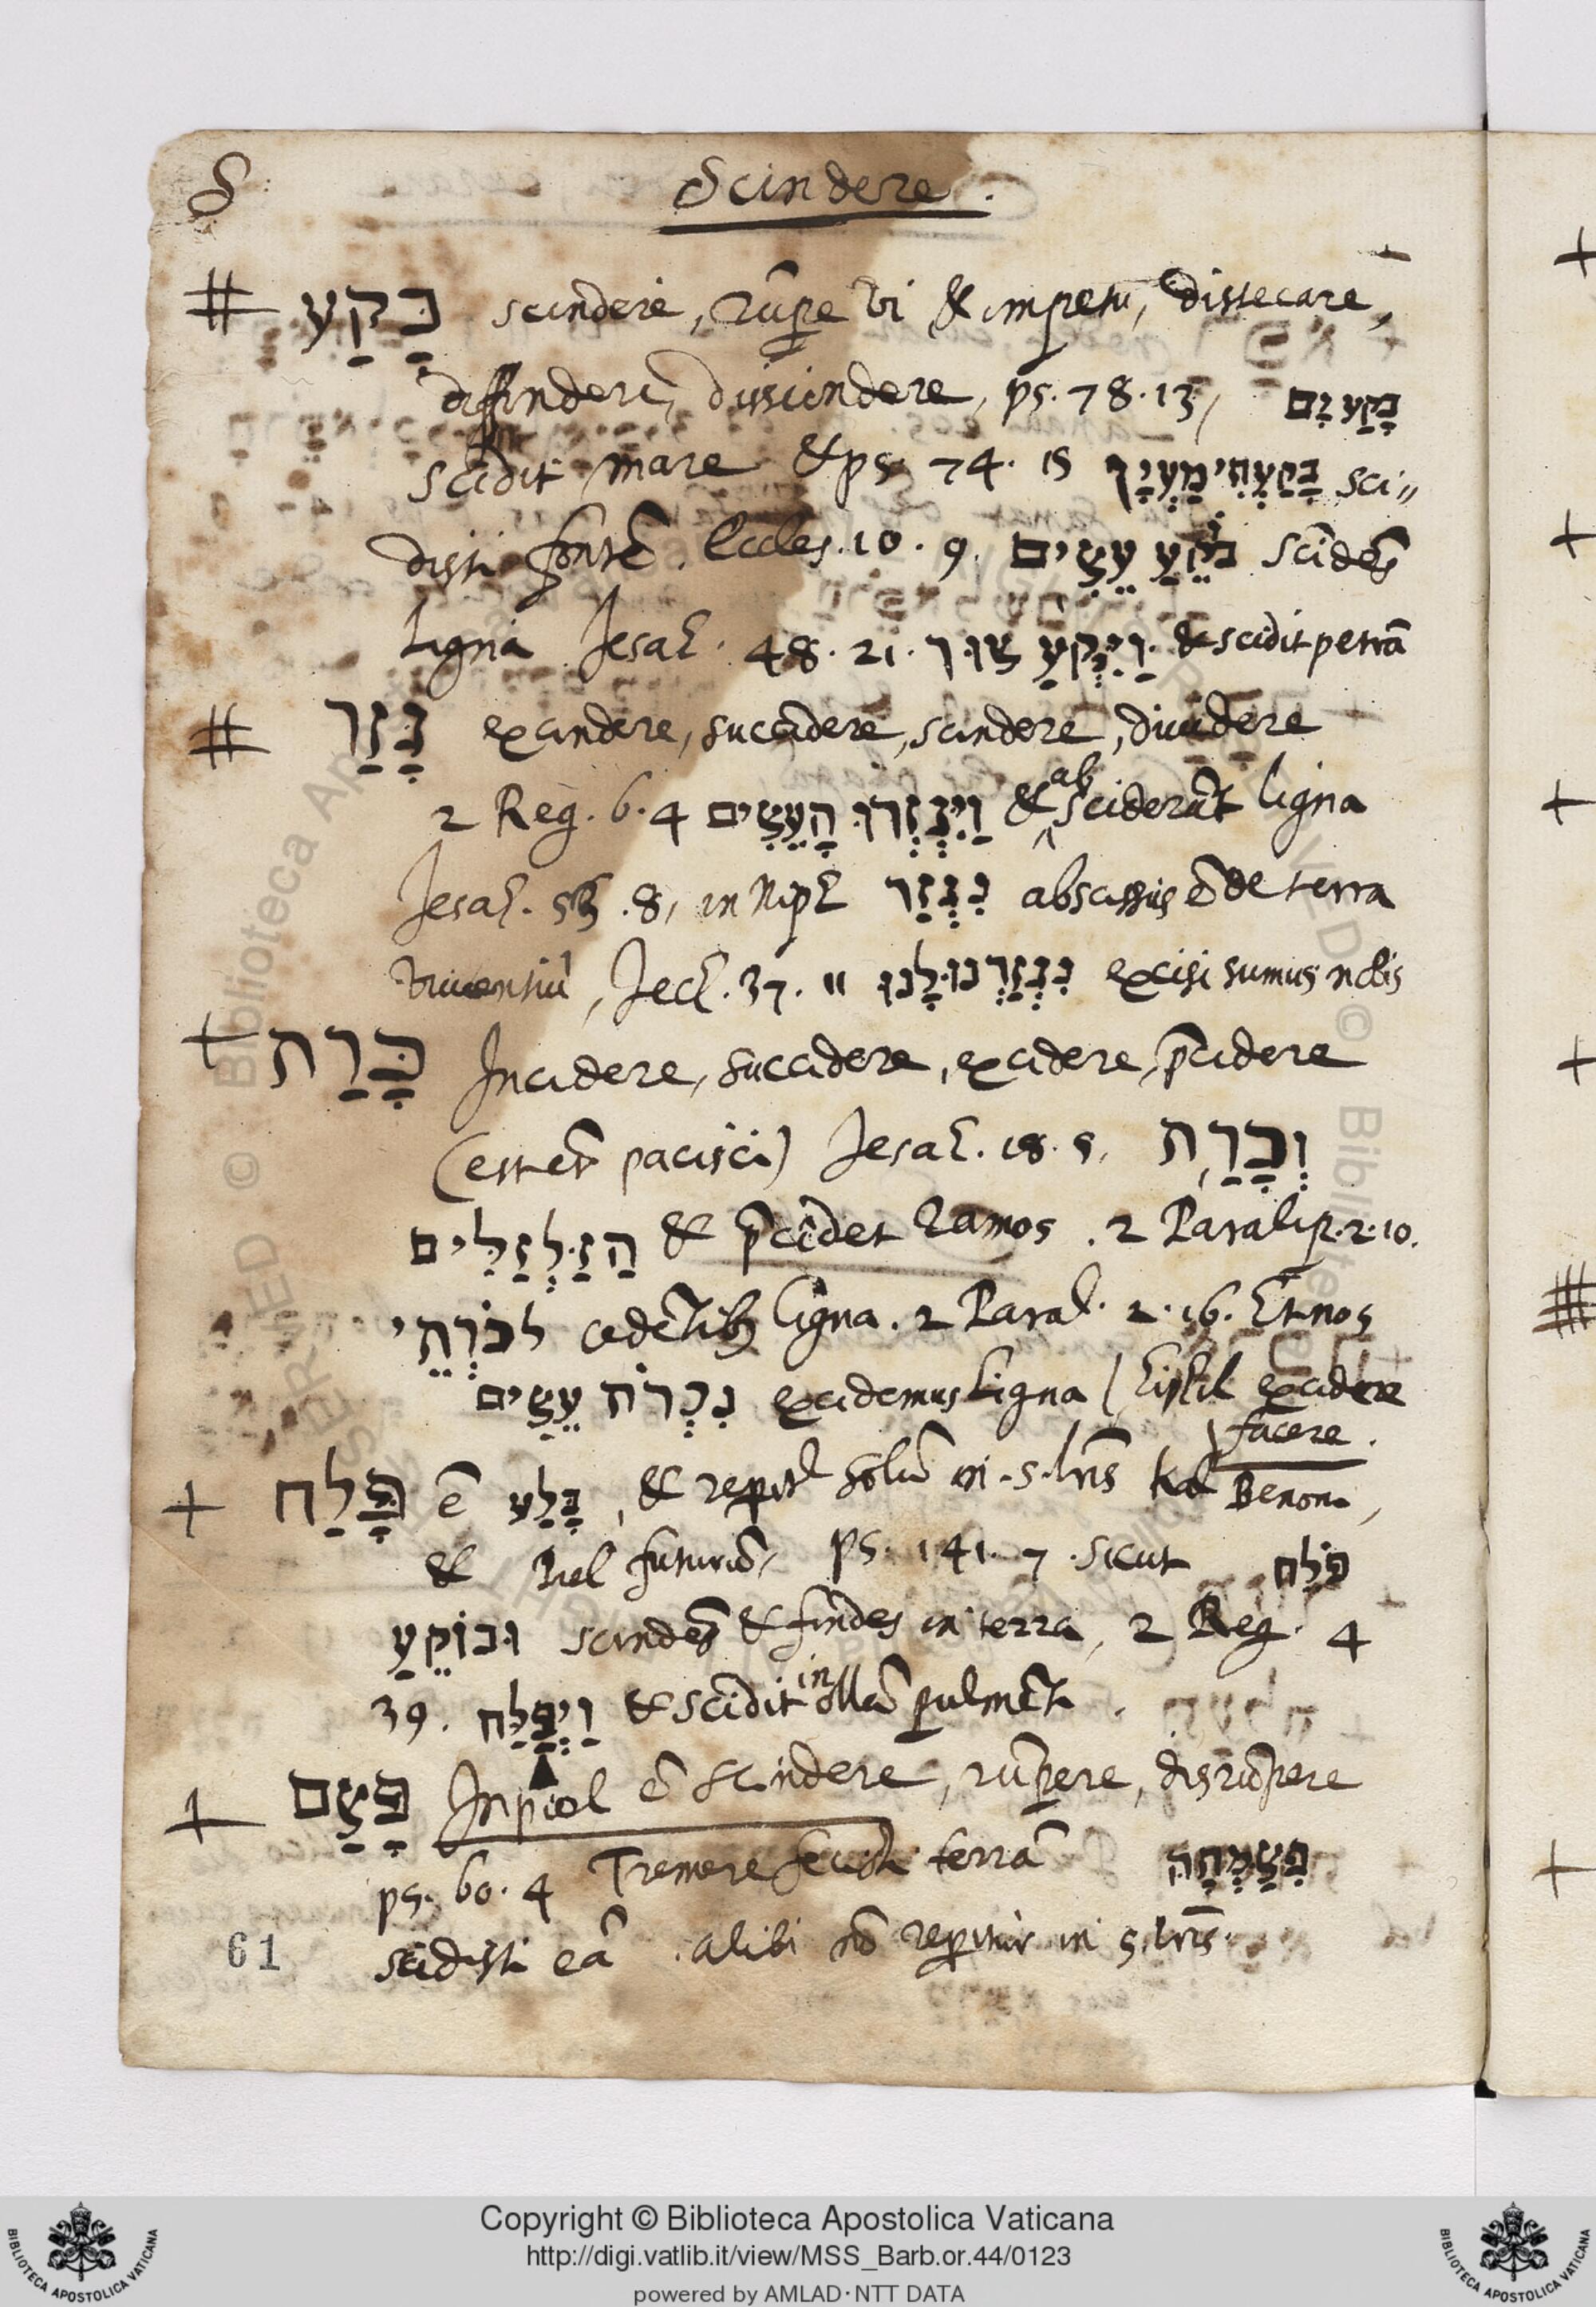 S
Scindere.
# בָּקַע scindere, rũpe vi & impetu, dissecare,
diffindere, dissiendere, ps. 78.13, בָּקַע יָם
Scidit mare & ps. 74. 15 בָּקַעְתָּ מַעְיָן sci"
disti fontẽ. Eccles. 10. 9. בֹּקֵעַ עֵצִים Scĩdẽs
Ligna Jesai. 48. 21. וַיִּבְקַע צוּר & scidit petrã
# גָּזַר excindere, succidere, scindere, dividere
2 Reg. 6. 4 וַיִּגְזְרוּ הָעֵצִים & absciderũt ligna
Jesai. 53. 8, in Niph נִגְזַר abscissus ẽ de terra
viventiũ, Jech. 37. 11 נִגְזַרְנוּ לָנוּ excisi sumus nobis
+ כָּרַת Incidere, succidere, excidere, p̃cidere
(est etĩã pacisci) Jesai. 18. 5, וְכָרַת
הַזַּלְזַלִּים & p̃cidet Ramos. 2 Paralip. 2. 10.
לכֹּרְתֵי cedẽtibus ligna. 2 Paral. 2. 16. Et nos
נִכְרֹת עֵצִים excidemus Ligna (hiphil excidere
facere.
+ פָּלַח ẽ בָּלַע, & reperit solũ in. s. lris kal Benoni,
& Piel futurũ, ps. 141. 7. sicut פֹּלֵחַ
וּבוֹקֵעַ scindẽs & findẽs in terra, 2 Reg. 4
39. וַיְפַלַּח & scĩdit in ollã pulmẽti.
+ פָּצַם In piel ẽ Scindere, rũpere, disrũpere
ps. 60. 4 Tremere fecisti terrã פְּצַמְתָּהּ
scidisti eã. alibi nõ reperitur in s. lris.
61
Copyright © Biblioteca Apostolica Vaticana
http://digi.vatlib.it/view/MSS_Barb.or.44/0123
powered by AMLAD·NTT DATA